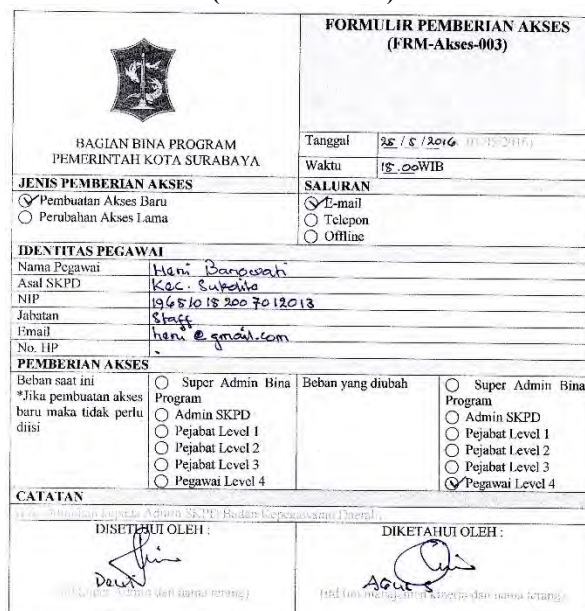 FORMULIR PEMBERIAN AKSES
(FRM-Akses-003)
BAGIAN BINA PROGRAM
PEMERINTAH KOTA SURABAYA
Tanggal 25 / 5 / 2016
Waktu 15.00 WIB
JENIS PEMBERIAN AKSES
Pembuatan Akses Baru
Perubahan Akses Lama
SALURAN
E-mail
Telepon
Offline
IDENTITAS PEGAWAI
Nama Pegawai Heni Banowati
Asal SKPD Kec. Sukolilo
NIP 196510152007012013
Jabatan Staff
Email heni@gmail.com
No. HP -
PEMBERIAN AKSES
Beban saat ini
*Jika pembuatan akses
baru maka tidak perlu
diisi
Super Admin Bina
Program
Admin SKPD
Pejabat Level 1
Pejabat Level 2
Pejabat Level 3
Pegawai Level 4
Beban yang diubah
Super Admin Bina
Program
Admin SKPD
Pejabat Level 1
Pejabat Level 2
Pejabat Level 3
Pegawai Level 4
CATATAN
Admin SKPD Badan Kepegawaian Daerah
DISETUJUI OLEH :
Dewi
dan nama terang)
DIKETAHUI OLEH :
Agus
(ttd tim manajemen kinerja dan nama terang)